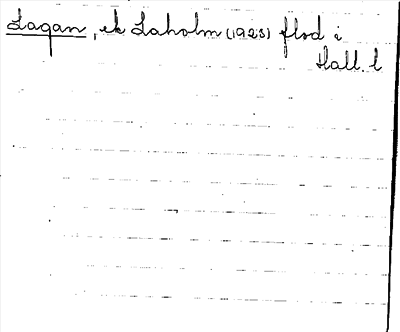 Lagan, ek Laholm (1923) flod i
Hall. l